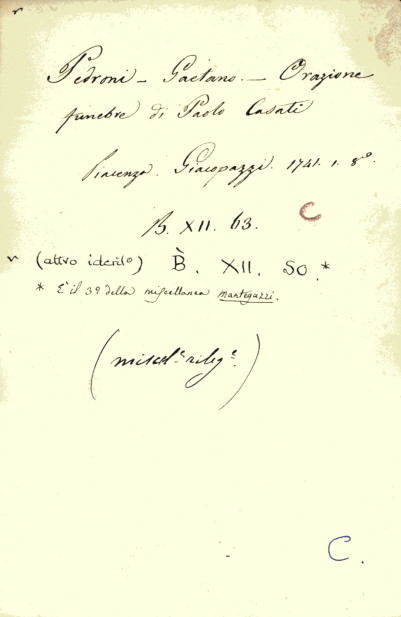 Pedroni - Gaetano. - Orazione
funebre di Paolo Casati
Piacenza. Giacopazzi. 1741. 1. 8º.
B. XII. 63. C
v (altro identº) B. XII. 50.*
* È il 3º della miscellanea Mantegazzi.
(miscel.ª rileg.ª)
C.